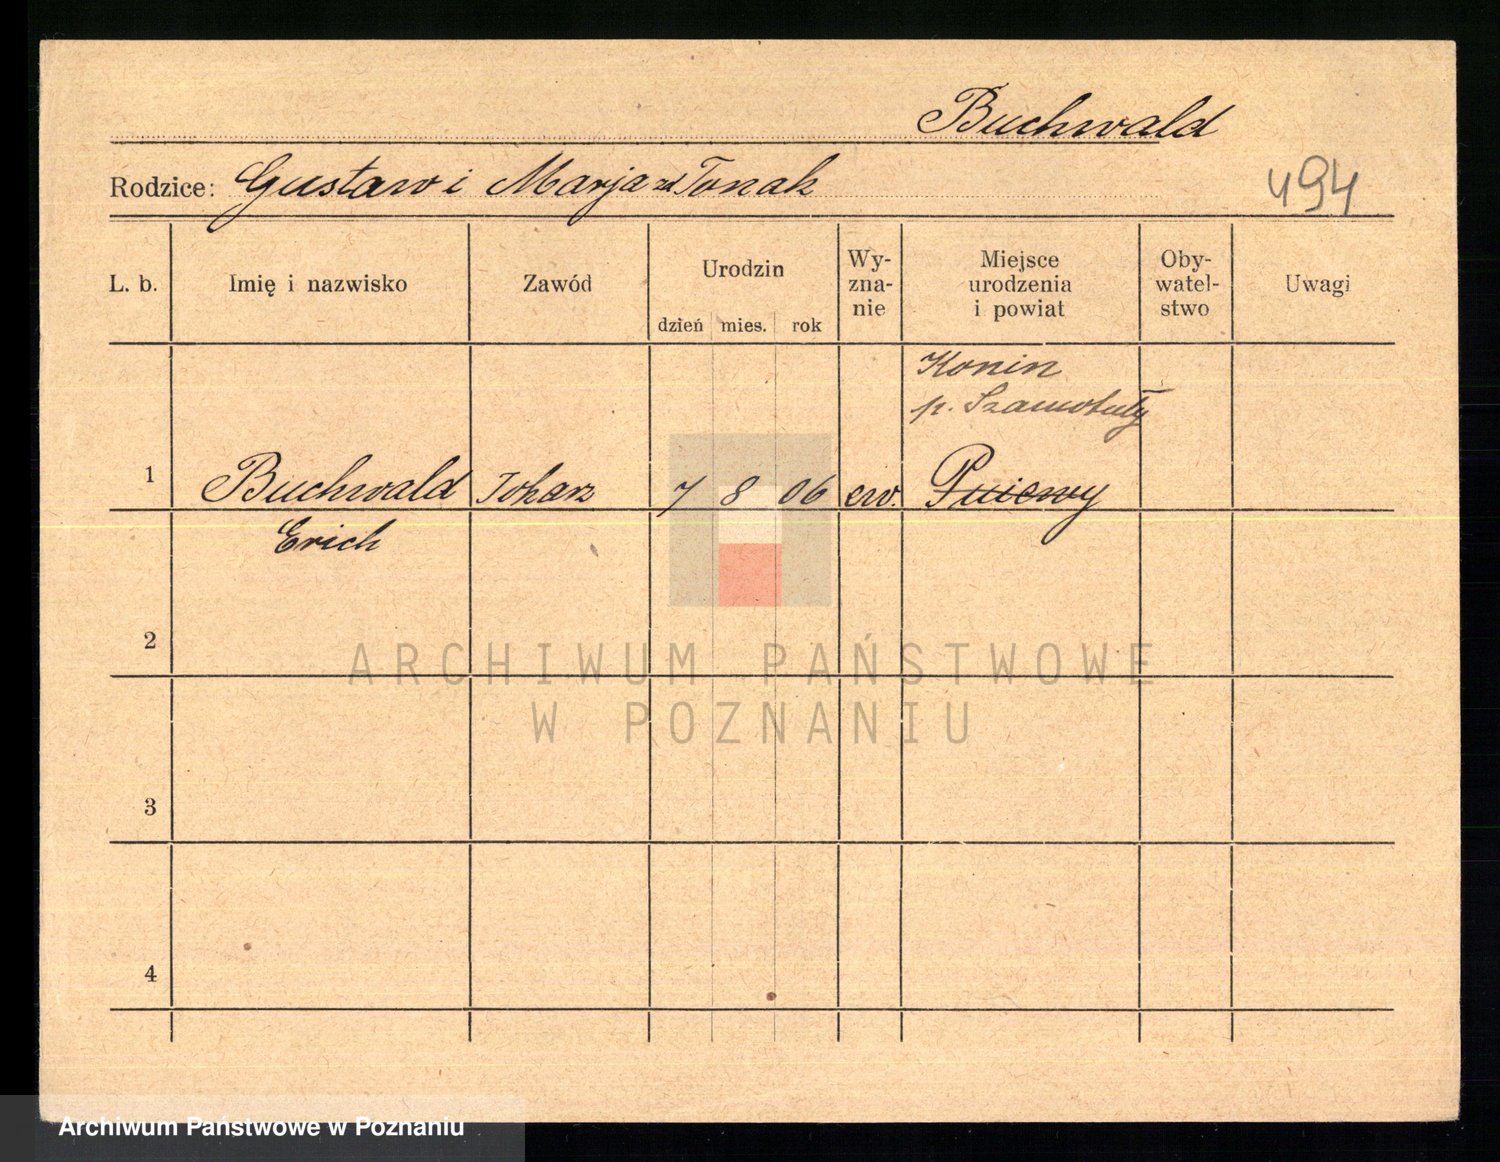 Buchwald
Rodzice: Gustaw i Marja zd Tonak
494
L. b.
Imię i nazwisko
Zawód
Urodzin
dzień mies. rok
Wy-
zna-
nie
Miejsce
urodzenia
i powiat
Oby-
watel-
stwo
Uwagi
Konin
p. Szamotuły
1 Buchwald Tokarz 7 8 06 ew. Pniewy
Erich
2
3
4
ARCHIWUM PAŃSTWOWE
W POZNANIU
Archiwum Państwowe w Poznaniu